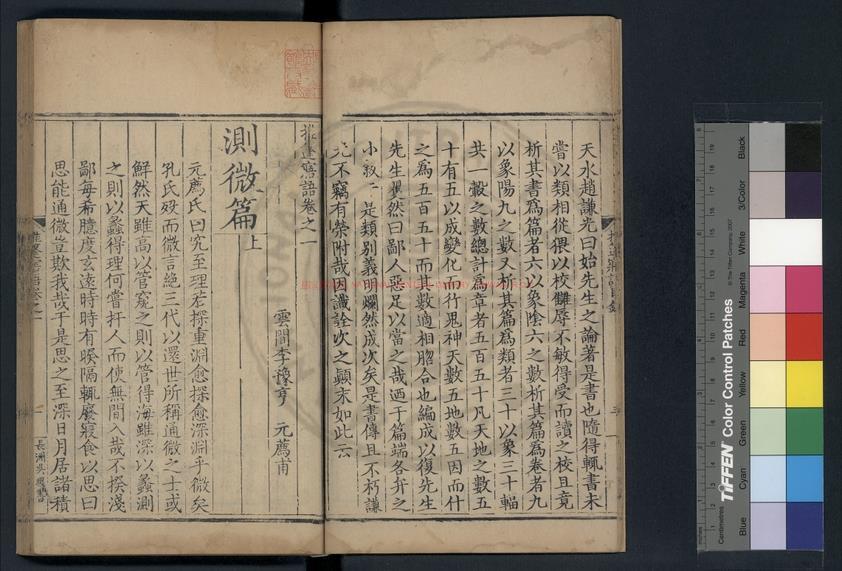 天水趙謙光曰始先生之論著是書也隨得輒書未
嘗以類相從猥以校讎辱不敏得受而讀之校且竟
析其書爲篇者六以象陰六之數析其篇爲卷者九
以象陽九之數又析其篇爲類者三十以象三十輻
共一轂之數總計爲章者五百五十凡天地之數五
十有五以成變化而行鬼神天數五地數五因而什
之爲五百五十而生數適相脗合也編成以復先生
先生瞿然曰鄙人惡足以當之哉迺于篇端各弁之
小敘是類別義明爛然成次矣是書傳且不朽謙
光不竊有榮附哉因識詮次之顛末如此云
推篷寤語卷之一
雲間李豫亨 元薦甫
測微篇上
元薦氏曰究至理若探重淵愈探愈深淵乎微矣
孔氏歿而微言絕三代以還世所稱通微之士或
鮮然天雖高以管窺之則以管得海雖深以蠡測
之則以蠡得理何嘗扞人而使無間入哉不揆淺
鄙每希臆度玄遠時時有暌隔輒廢寢食以思曰
思能通微豈欺我哉于是思之至深日月居諸積
長洲吳
TIFFEN Color Control Patches
© The Tiffen Company, 2007
Centimetres
Blue
Cyan
Green
Yellow
Red
Magenta
White
3/Color
Black